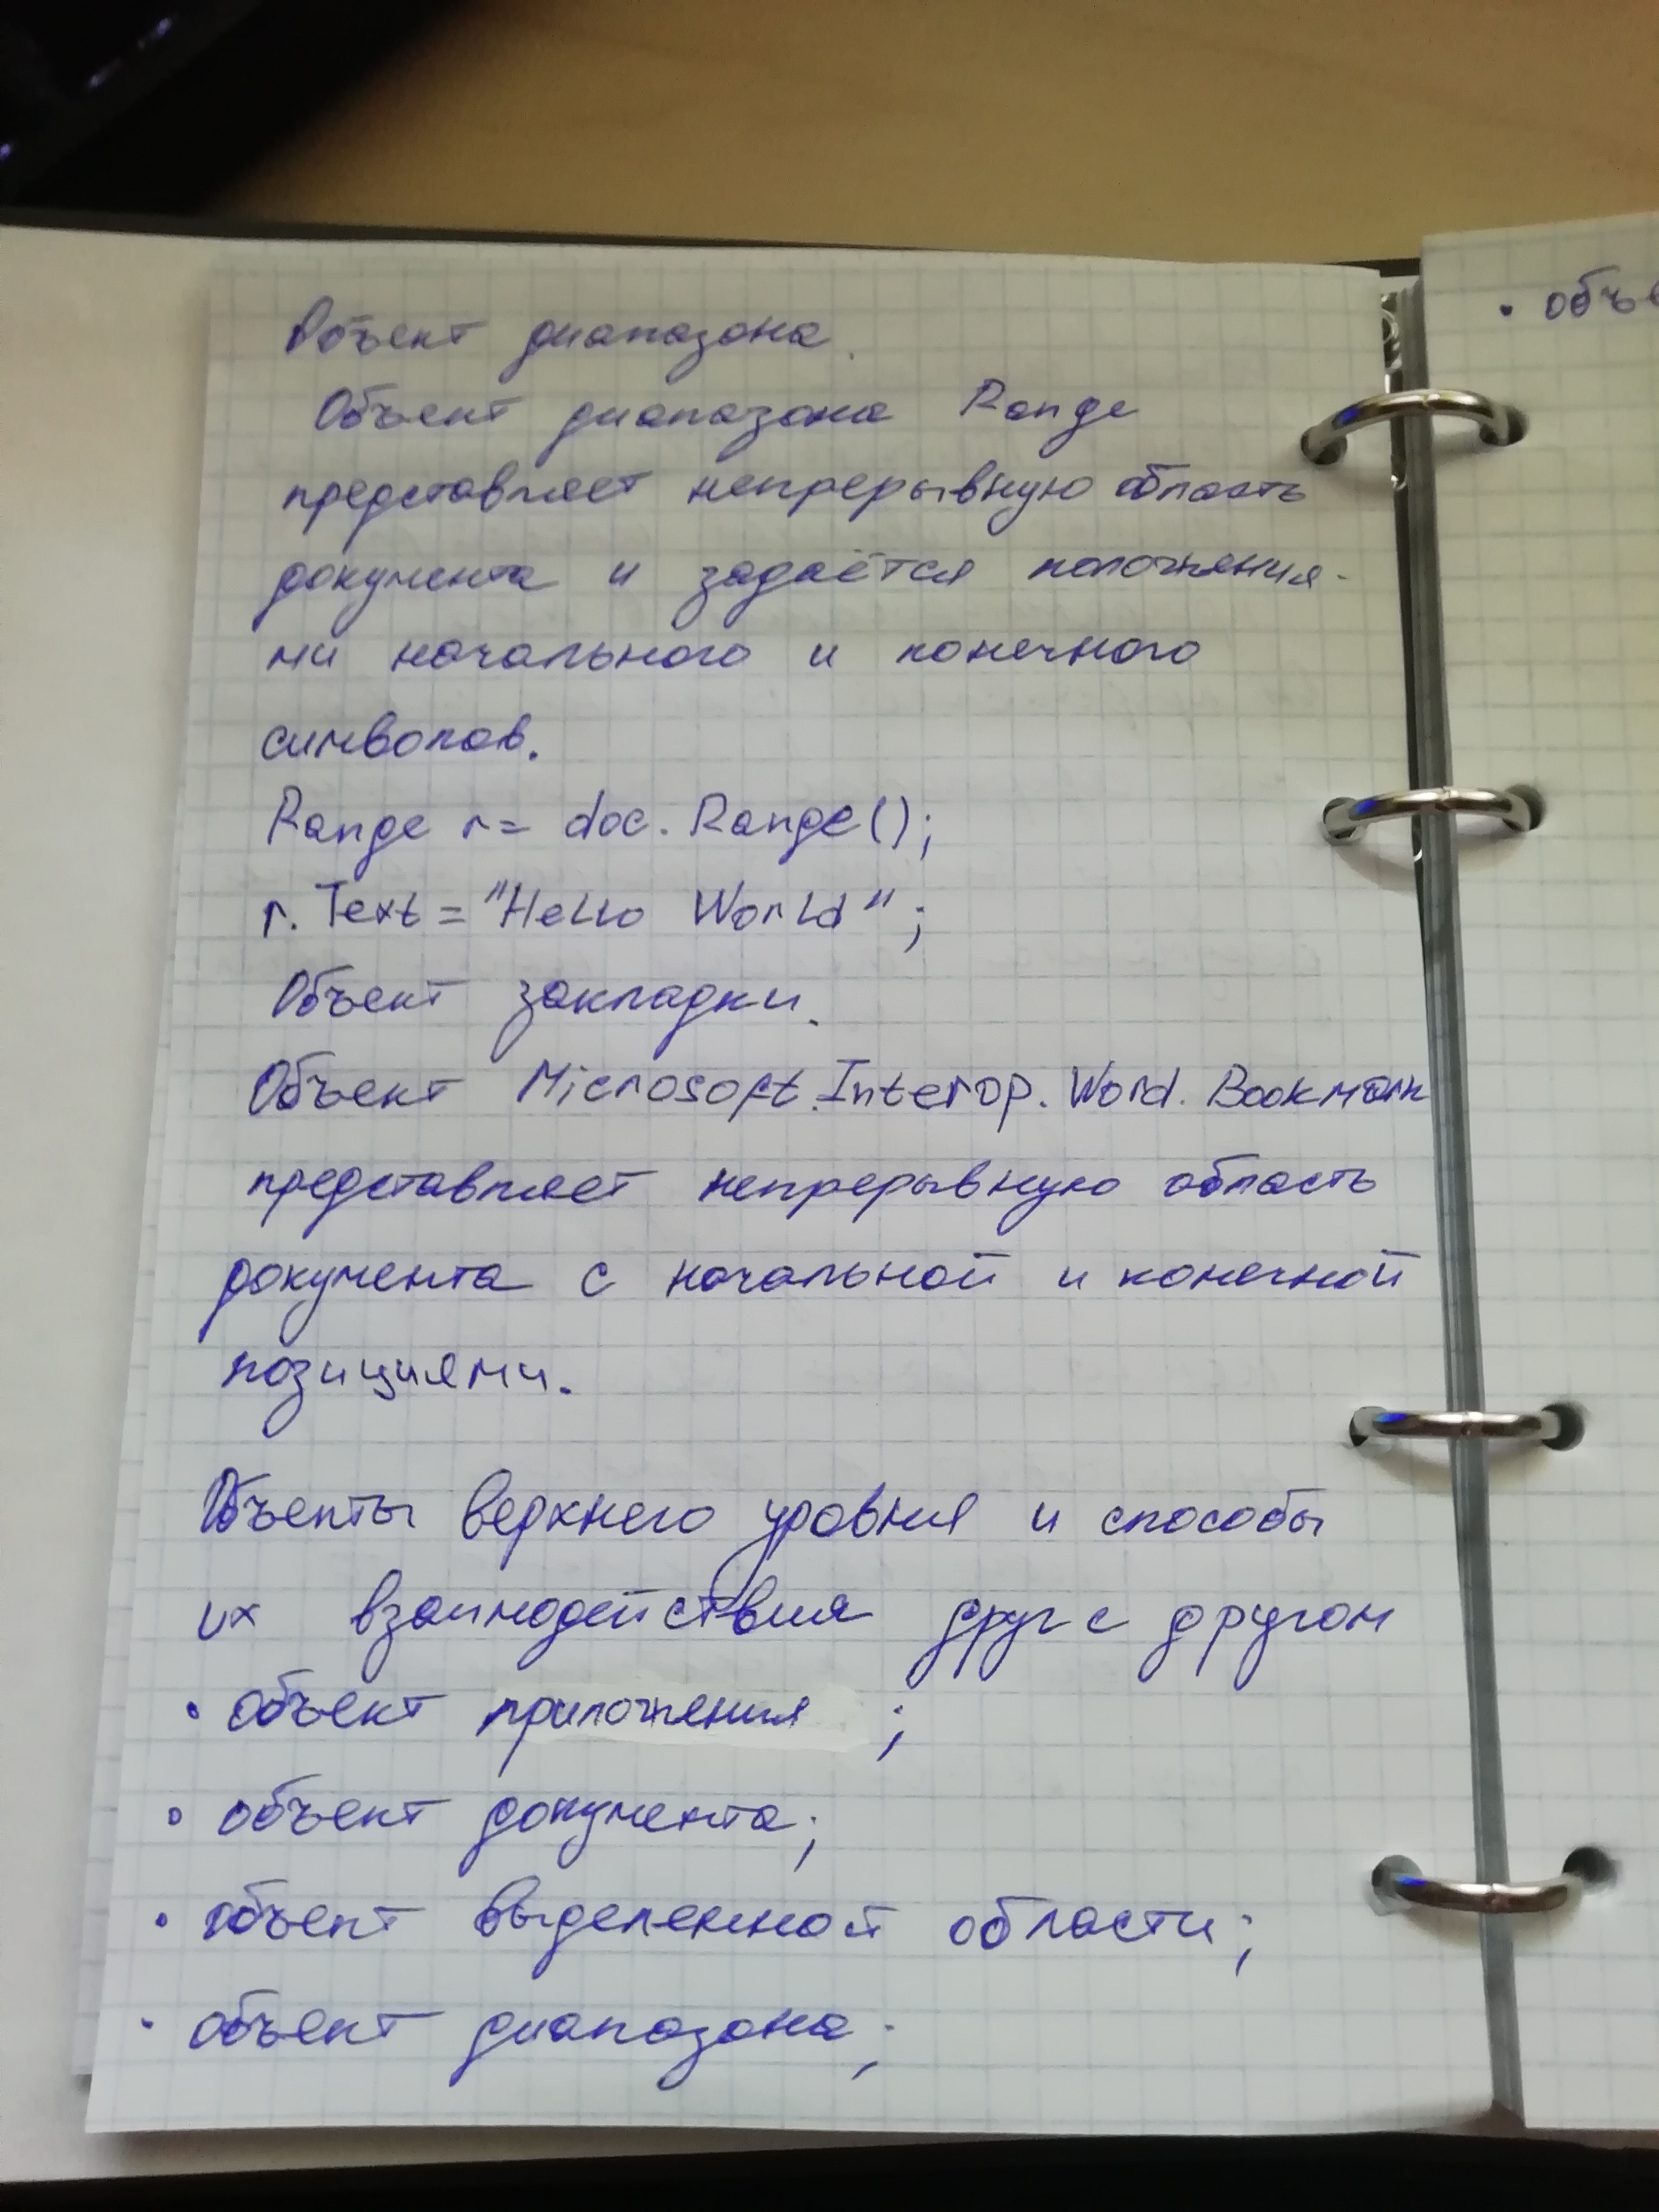 Объект диапазона.
Объект диапазона Range
представляет непрерывную область
документа и задаётся положения-
ми начального и конечного
символов.
Range r = doc.Range();
r.Text = "Hello World";
Объект закладки.
Объект Microsoft.Interop.Word.Bookmark
представляет непрерывную область
документа с начальной и конечной
позициями.
Объекты верхнего уровня и способы
их взаимодействия друг с другом
• объект приложения ;
• объект документа;
• объект выделенной области;
• объект диапазона;
• объе